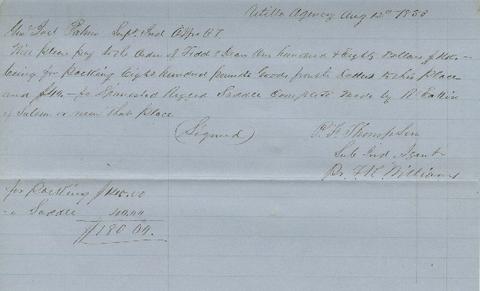 Utilla Agency Aug 12th 1853
Genl Joel Palmer Supt. Ind. Affrs O.T.
Will please pay to the order of Tidd & Dean One hundred & Eighty Dollars $140.—
being for Packing Eight hundred pounds Goods from the Dalles to this Place
and $40.— for Saddle Complete Made by
of Salem or near that place
(Signed)
Thompson
Sub Ind Agent
Pr. Williams
for Packing $140.00
" Saddle 40.00
$180.00